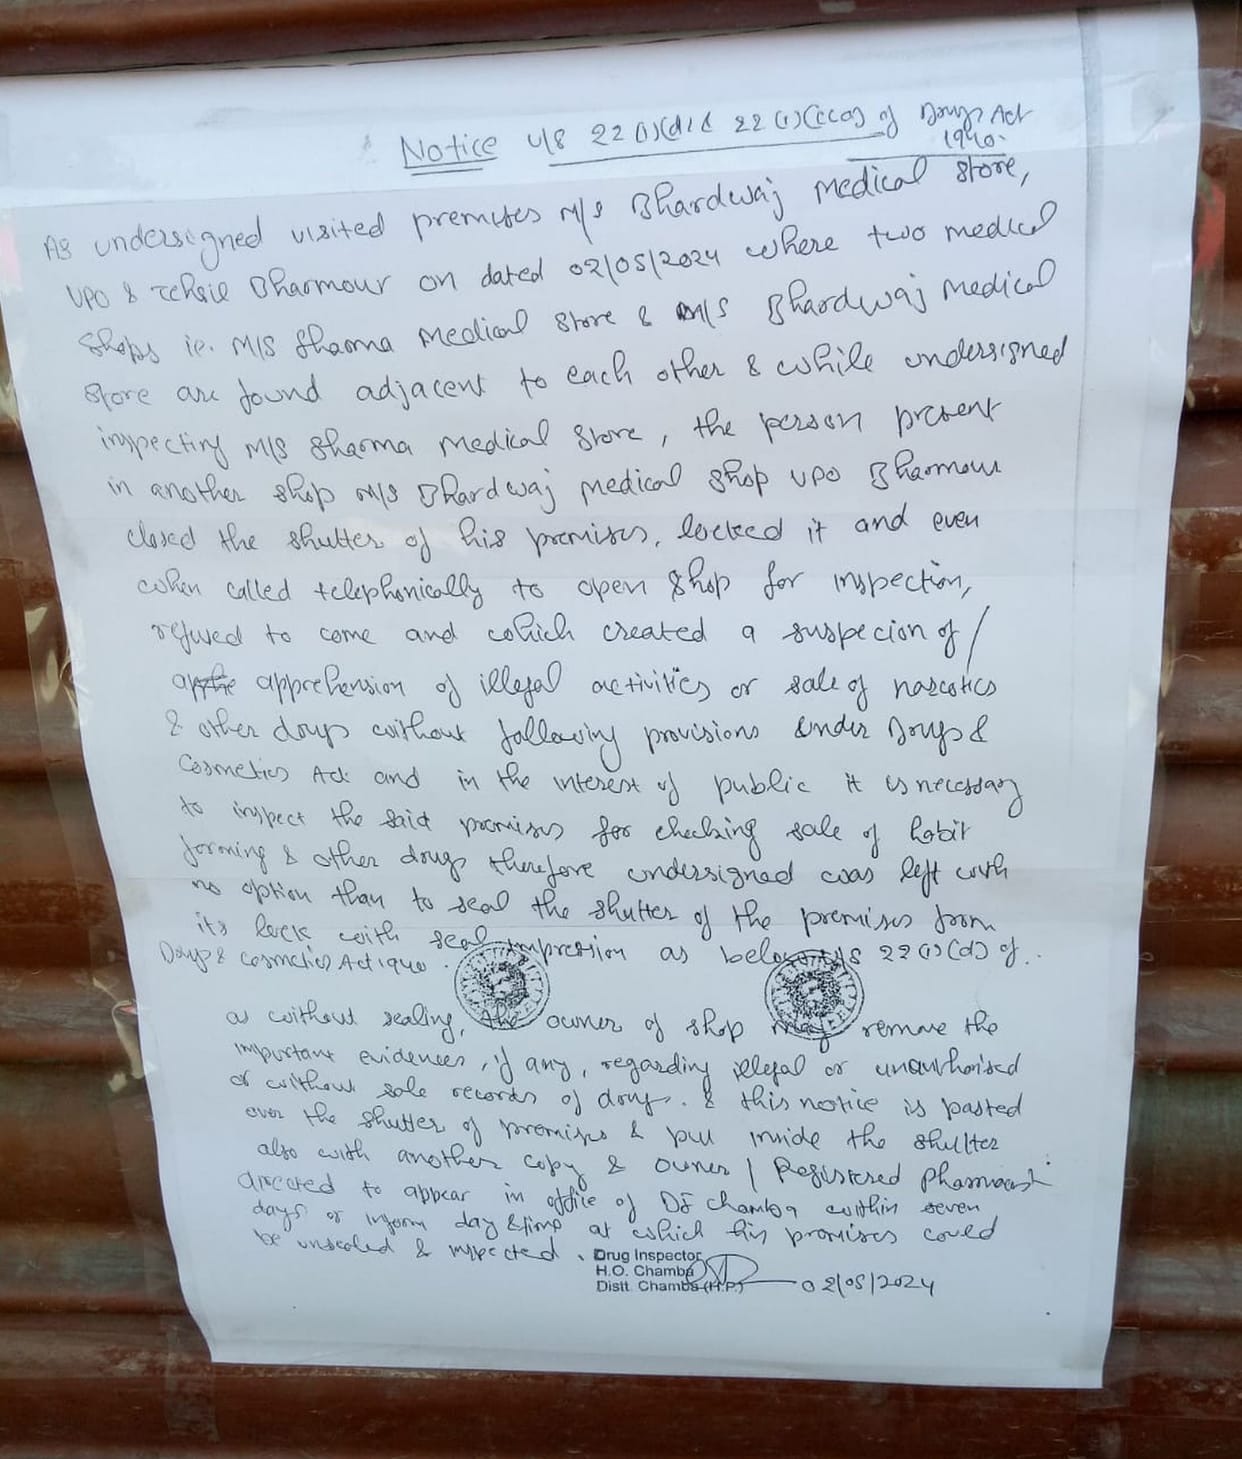 Notice u/s 22(1)(d) & 22(1)(cca) of Drugs Act
1940.
As undersigned visited premises M/s Bhardwaj Medical Store,
VPO & Tehsil Bharmour on dated 02/05/2024 where two medical
shops ie. M/S Sharma Medical Store & M/S Bhardwaj Medical
Store are found adjacent to each other & while undersigned
inspecting M/S Sharma Medical Store, the person present
in another shop M/S Bhardwaj Medical Shop VPO Bharmour
closed the shutter of his premises, locked it and even
when called telephonically to open shop for inspection,
refused to come and which created a suspecion of /
apprehension of illegal activities or sale of narcotics
& other drugs without following provisions under Drugs &
Cosmetics Act and in the interest of public it is necessary
to inspect the said premises for checking sale of habit
forming & other drugs therefore undersigned was left with
no option than to seal the shutter of the premises from
its lock with seal impression as below u/s 22(1)(d) of..
Drugs & Cosmetics Act 1940.
as without sealing, the owner of shop may remove the
important evidences, if any, regarding illegal or unauthorised
or without sale records of drugs. & this notice is pasted
over the shutter of premises & put inside the shutter
also with another copy & owner / Registered Pharmacist
directed to appear in office of DI Chamba within seven
days or inform day & time at which his premises could
be unsealed & inspected.
Drug Inspector
H.O. Chamba
Distt. Chamba (H.P.) 02/05/2024